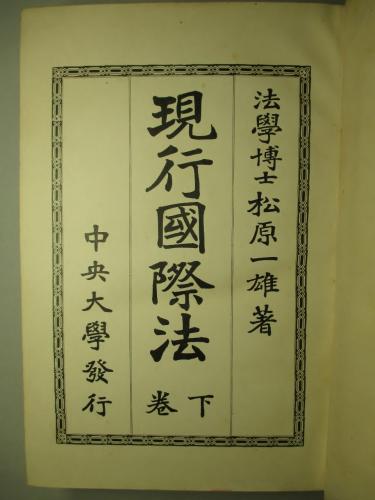 法學博士 松原一雄著
現行國際法
下卷
中央大學發行